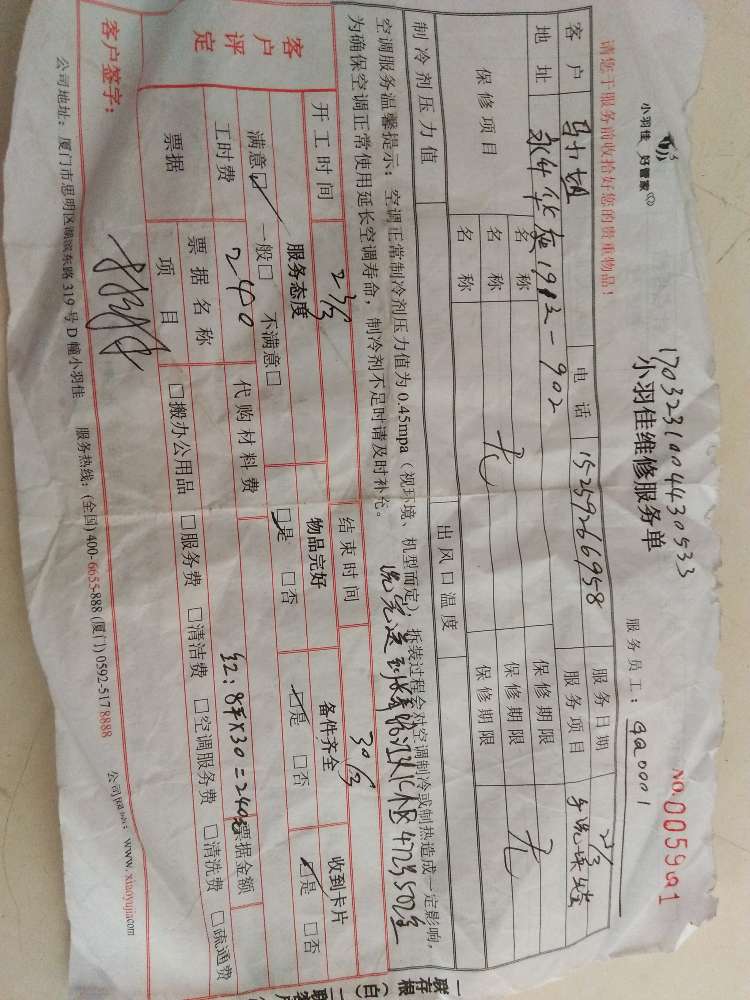 小羽佳 好管家
1703231004430533
小羽佳维修服务单
NO.0059991
请您于服务前收拾好您的贵重物品！
服务员工：990001
客户 电话 15259266958 服务日期
地址 1912-902 服务项目
保修项目 名称 无 保修期限 无
名称 保修期限
名称 保修期限
制冷剂压力值 出风口温度
空调服务温馨提示：空调正常制冷剂压力值为0.45mpa（视环境、机型而定），拆装过程会对空调制冷或制热造成一定影响，
为确保空调正常使用延长空调寿命，制冷剂不足时请及时补充。
开工时间 结束时间 30/3
客户评定 服务态度 物品完好 备件齐全 收到卡片
满意☑ 一般□ 不满意□ □是 □否 ☑是 □否 ☑是 □否
工时费 240 代购材料费 8×30=240 票据金额
票据 票据名称 项目 □搬办公用品 □服务费 □清洁费 □空调服务费 □清洗费 □疏通费
客户签字：
公司地址：厦门市思明区湖滨东路319号D幢小羽佳 服务热线：(全国)400-6655-888 (厦门)0592-5178888 公司网站：www.xiaoyujia.com